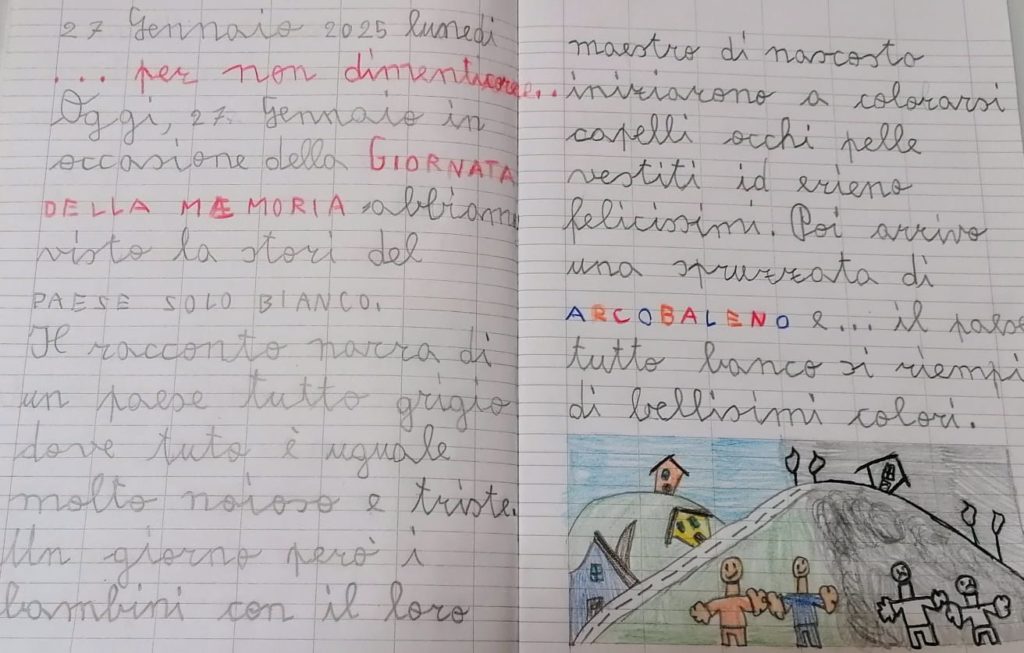 27 Gennaio 2025 lunedì
... per non dimenticare...
Oggi, 27 Gennaio in
occasione della GIORNATA
DELLA MEMORIA abbiamo
visto la stori del
PAESE SOLO BIANCO.
Il racconto narra di
un paese tutto grigio
dove tuto è uguale
molto noioso e triste.
Un giorno però i
bambini con il loro
maestro di nascosto
iniziarono a colorarsi
capelli occhi pelle
vestiti id erieno
felicissimi. Poi arrivo
una spruzzata di
ARCOBALENO e... il paese
tutto banco si riempi
di bellisimi colori.